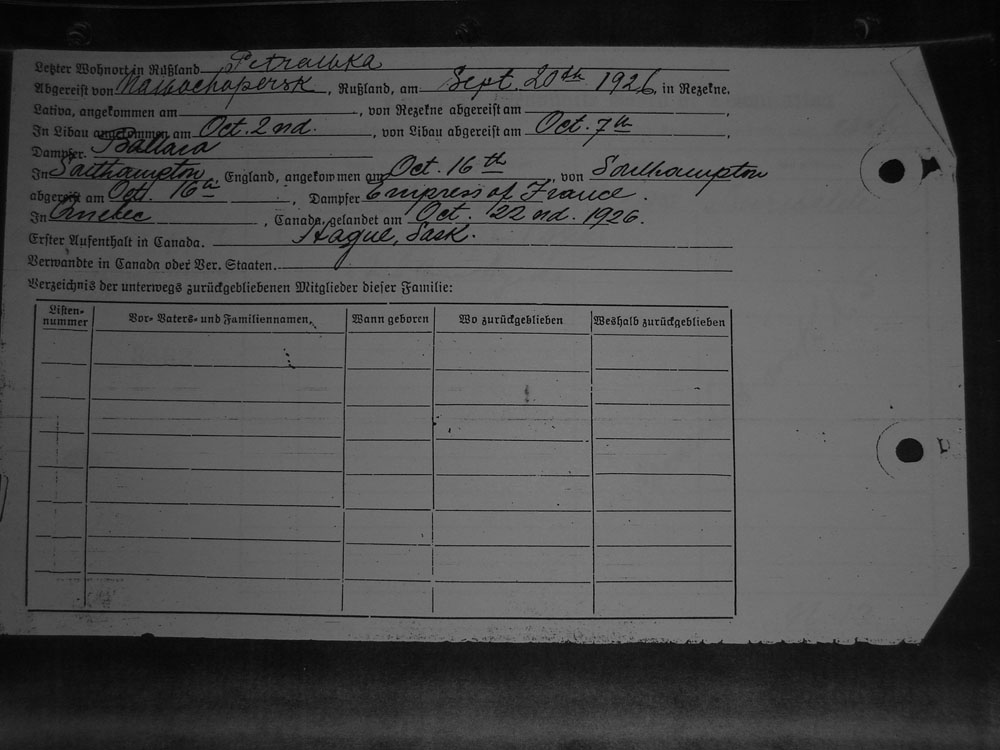 Letzter Wohnort in Rußland Petrawka
Abgereist von Nawochopersk, Rußland, am Sept. 20th 1926, in Rezekne,
Lativa, angekommen am , von Rezekne abgereist am ,
In Libau angekommen am Oct. 2nd. , von Libau abgereist am Oct. 7th ,
Dampfer. Baltara
In Southampton, England, angekommen am Oct. 16th , von Southampton
abgereist am Oct. 16th , Dampfer Empress of France .
In Quebec , Canada, gelandet am Oct. 22nd. 1926.
Erster Aufenthalt in Canada. Hague, Sask.
Verwandte in Canada oder Ver. Staaten.
Verzeichnis der unterwegs zurückgebliebenen Mitglieder dieser Familie:
Listen-nummer Vor- Vaters- und Familiennamen, Wann geboren Wo zurückgeblieben Weshalb zurückgeblieben